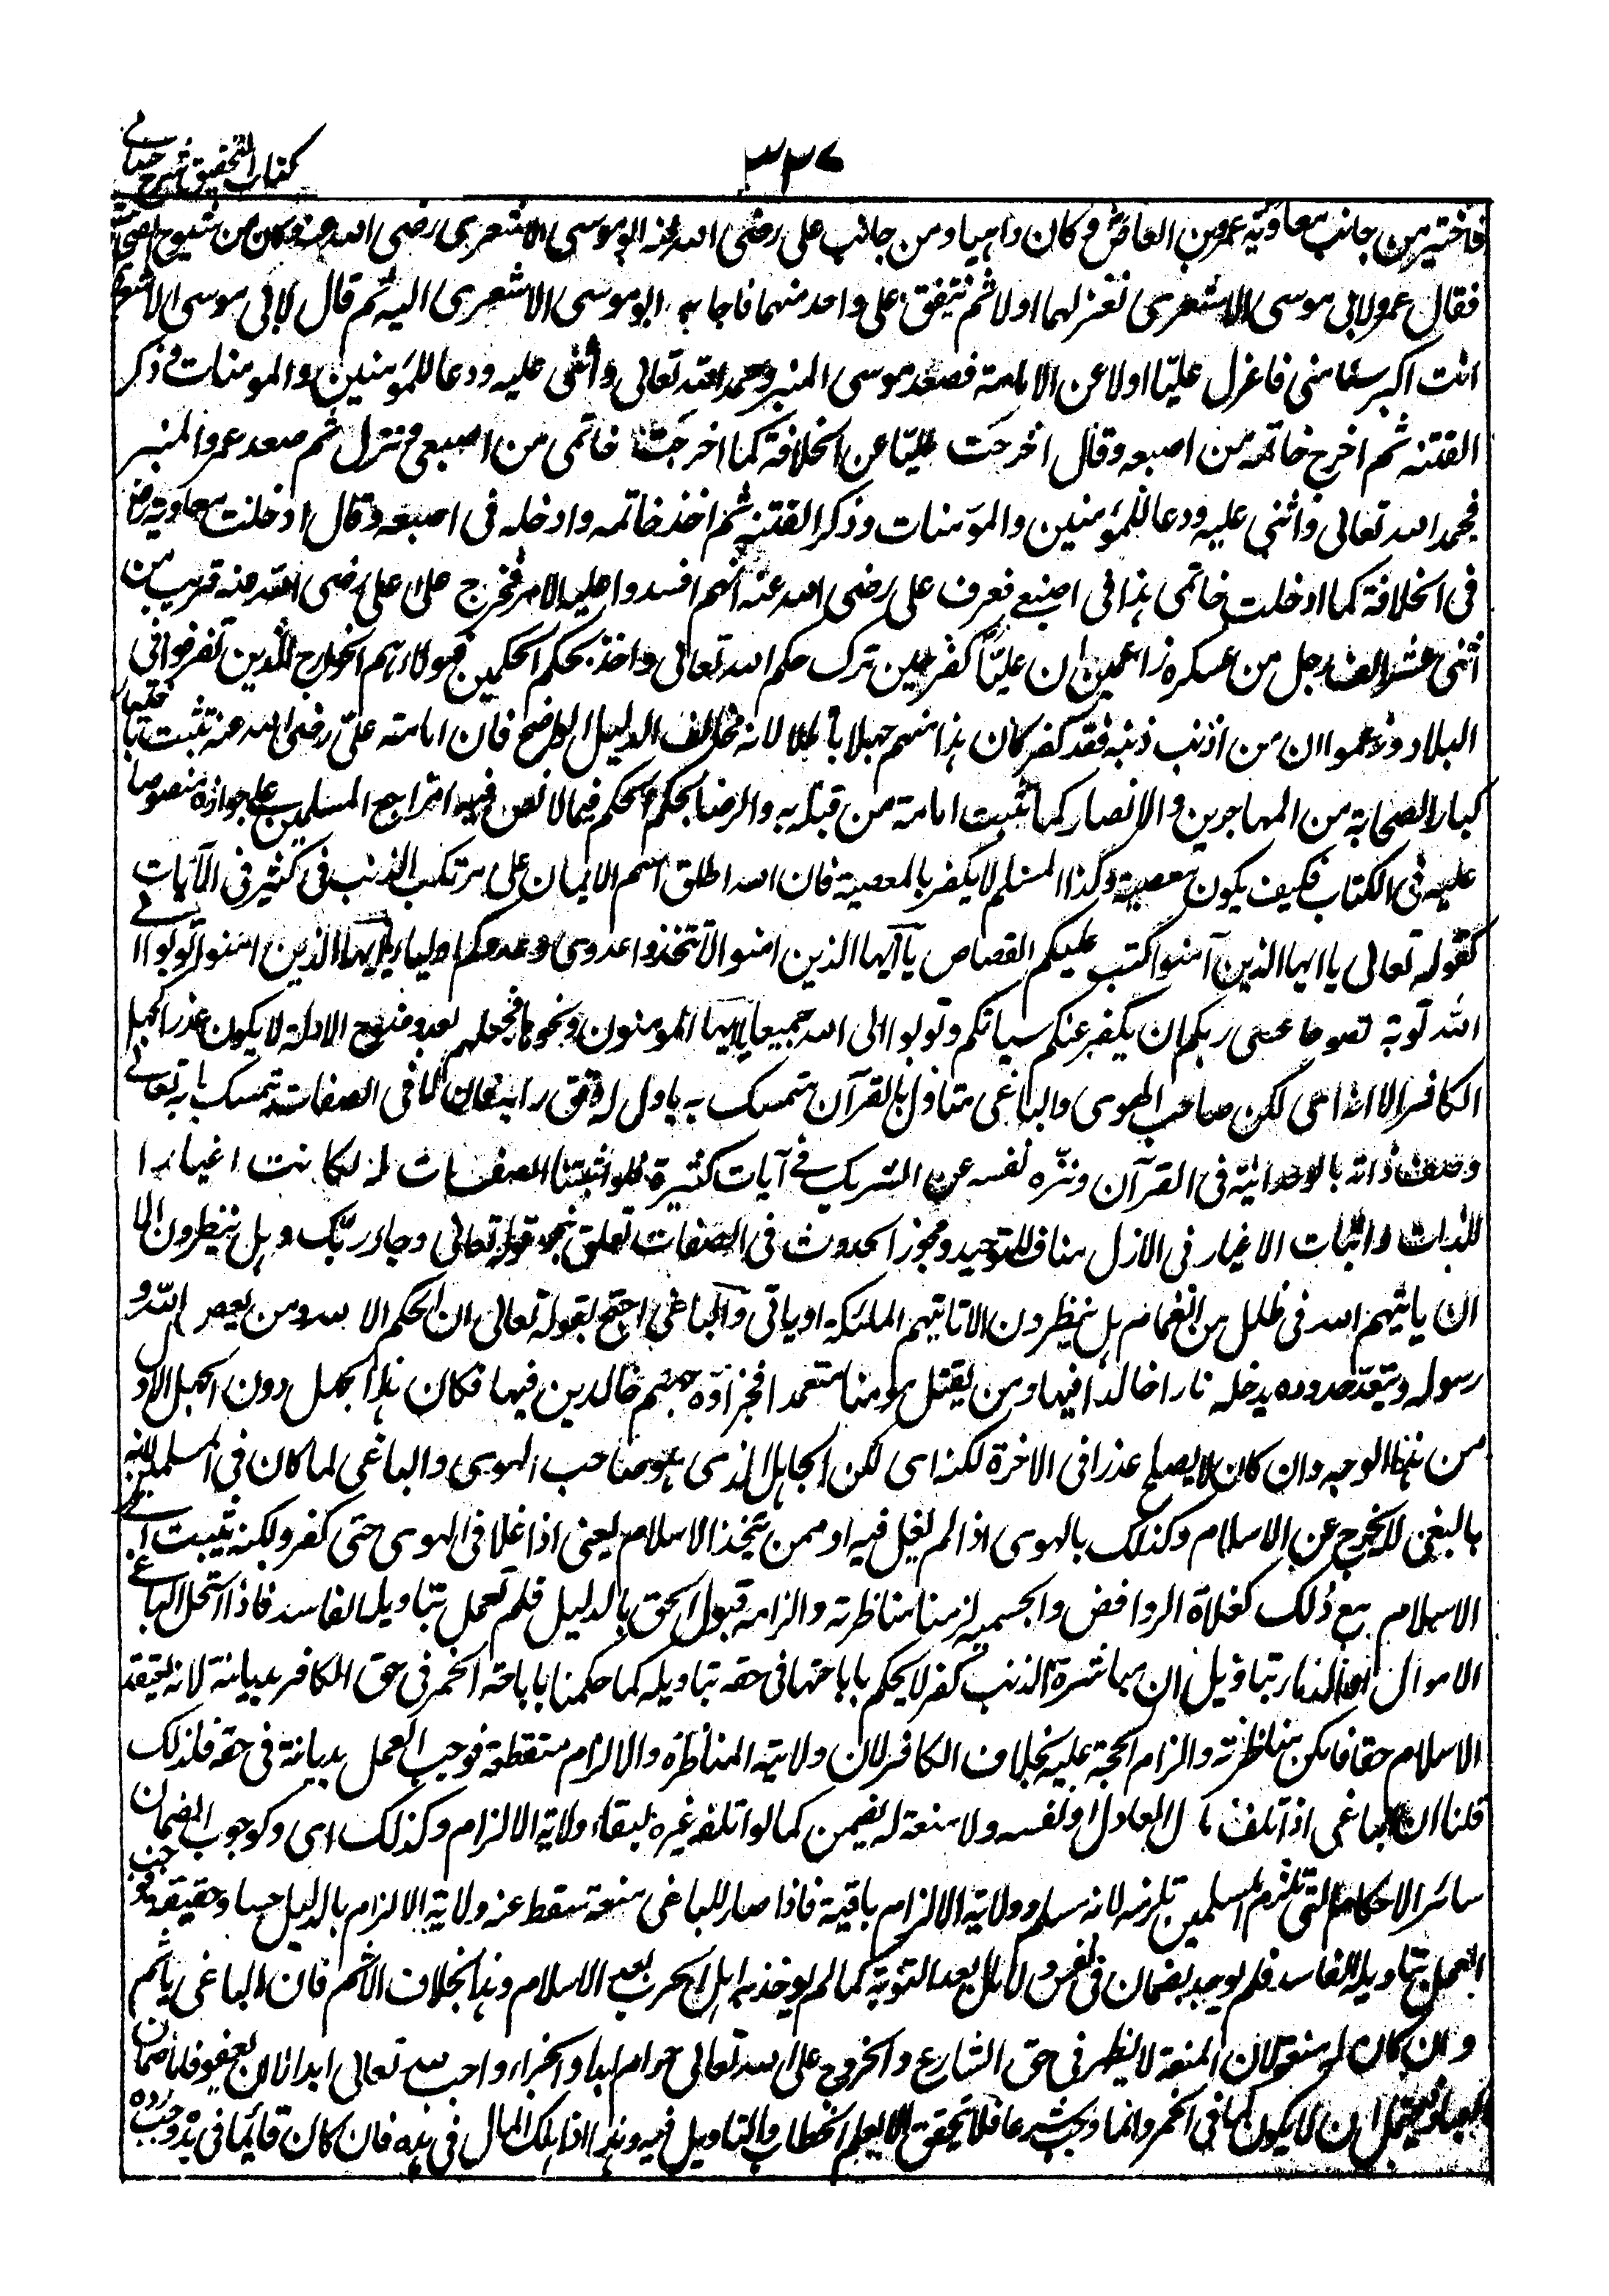 كتاب التحقيق شرح حسامي
٣٣٧
فاختير من جانب معاوية عمرو بن العاص وكان داهيا ومن جانب على رضى الله عنه ابو موسى الاشعرى رضى الله عنه وكان من شيوخ الصحابة
فقال عمرو لابى موسى الاشعرى نعزلهما اولا ثم نتفق على واحد منهما فاجابه ابو موسى الاشعرى اليه ثم قال لابى موسى الاشعرى
انت اكبر سنا منى فاعزل عليّا اولا عن الامامة فصعد موسى المنبر وحمد الله تعالى واثنى عليه ودعا للمؤمنين والمومنات وذكر
الفتنه ثم اخرج خاتمه من اصبعه وقال اخرجت عليّا عن الخلافة كما اخرجت خاتمى من اصبعى ونزل ثم صعد عمرو المنبر
فحمد الله تعالى واثنى عليه ودعا للمؤمنين والمؤمنات وذكر الفتنه ثم اخذ خاتمه وادخله فى اصبعه وقال ادخلت معاوية رض
فى الخلافة كما ادخلت خاتمى هذا فى اصبعى فعرف على رضى الله عنه انهم افسدوا عليه الامر فخرج على على رضى الله عنه قريب من
اثنى عشر الف رجل من عسكره زاعمين ان عليّا كفر حين ترك حكم الله تعالى واخذ بحكم الحكمين فهولاء هم الخوارج الذين تفرقوا فى
البلاد وزعموا ان من اذنب ذنبه فقد كفر كان هذا منهم جهلا باطلا لانه مخالف الدليل الواضح فان امامة علىّ رضى الله عنه تثبت باختيار
كبار الصحابة من المهاجرين والانصار كما تثبت امامة من قبله به والرضا بحكم الحكم فيما لا نص فيه اجمع المسلمين على جوازه منصوصا
عليه فى الكتاب فكيف يكون معصية وكذا المسلم لا يكفر بالمعصية فان الله اطلق اسم الايمان على مرتكب الذنب فى كثير فى الآيات
كقوله تعالى يا ايها الذين آمنوا كتب عليكم القصاص يا ايها الذين امنوا لا تتخذوا عدوى وعدوكم اولياء يا ايها الذين امنوا توبوا الى
الله توبة نصوحا عسى ربكم ان يكفر عنكم سياتكم وتوبوا الى الله جميعا ايها المومنون ونحوها فجهلهم بعد وضوح الادلة لا يكون عذرا كجهل
الكافر الا انه اى لكن صاحب الهوى والباغى متاول بالقرآن متمسك به ياول له وفق رايه فان نافى الصفات تمسك بانه تعالى
وصف ذاته بالوحدانية فى القرآن ونزّه نفسه عن الشريك فى آيات كثيرة فلو اثبتنا الصفات له لكانت اغيارا
للذات واثبات الاغيار فى الازل مناف للتوحيد ومجوز الحدوث فى الصفات تعلق بنحو قوله تعالى وجاء ربّك وهل ينظرون الا
ان ياتيهم الله فى ظلل من الغمام هل ينظرون الا تاتيهم الملئكة او ياتى والباغى احتج بقوله تعالى ان الحكم الا لله ومن يعص الله و
رسوله ويتعد حدوده يدخله نارا خالدا فيها ومن يقتل مومنا متعمدا فجزاؤه جهنم خالدين فيها فكان هذا الجهل دون الجهل الاول
من هذا الوجه وان كان لا يصلح عذرا فى الاخرة لكنه اى لكن الجاهل الذى هو صاحب الهوى والباغى لما كان فى المسلمين لانه
بالبغى لا يخرج عن الاسلام وكذلك بالهوى اذا لم يغل فيه او ممن يتخذ الاسلام يعنى اذا غلا فى الهوى حتى كفر ولكنه يثبت الى
الاسلام مع ذلك كغلاة الروافض والجسمية لزمنا مناظرته والزامه قبول الحق بالدليل فلم تعمل بتاويله الفاسد فاذا استحل الباغى
الاموال او الدماء بتاويل ان مباشرة الذنب كفر لا يحكم باباحتها فى حقه بتاويله كما حكمنا باباحة الخمر فى حق الكافر بديانة لانه يعتقد
الاسلام حقا فامكن مناظرته والزام الحجة عليه بخلاف الكافر لان ولاية المناظرة والالزام منقطعة فوجب العمل بديانة فى حقه فلذلك
قلنا ان الباغى اذا تلف مال العادل او نفسه ولا منعة له يضمن كما لو اتلفه غيره لبقاء ولاية الالزام وكذلك اى وكوجوب الضمان
سائر الاحكام التى تلزم المسلمين تلزمه لانه مسلم وولاية الالزام باقية فاذا صار للباغى منعة سقط عنه ولاية الالزام بالدليل حسا وحقيقة فوجب
العمل بتاويله الفاسد فلم يوجد بضمان فى نفس ولا مال بعد التوبة كما لم يوخذ به اهل الحرب بعد الاسلام وهذا بخلاف الاثم فان الباغى ياثم
وان كان له منعة لان المنعة لا يظهر فى حق الشارع والخروج على الله تعالى حرام ابدا والجزاء واجب لله تعالى ابدا الا ان يعفو فاما ضمان
العباد فيحتمل ان لا يكون كما فى الخمر وانما وجب شرعا فلا يتحقق الا بعلم الخطاب والتاويل فيه وهذا اذا هلك المال فى يده فان كان قائما فى يده وجب رده